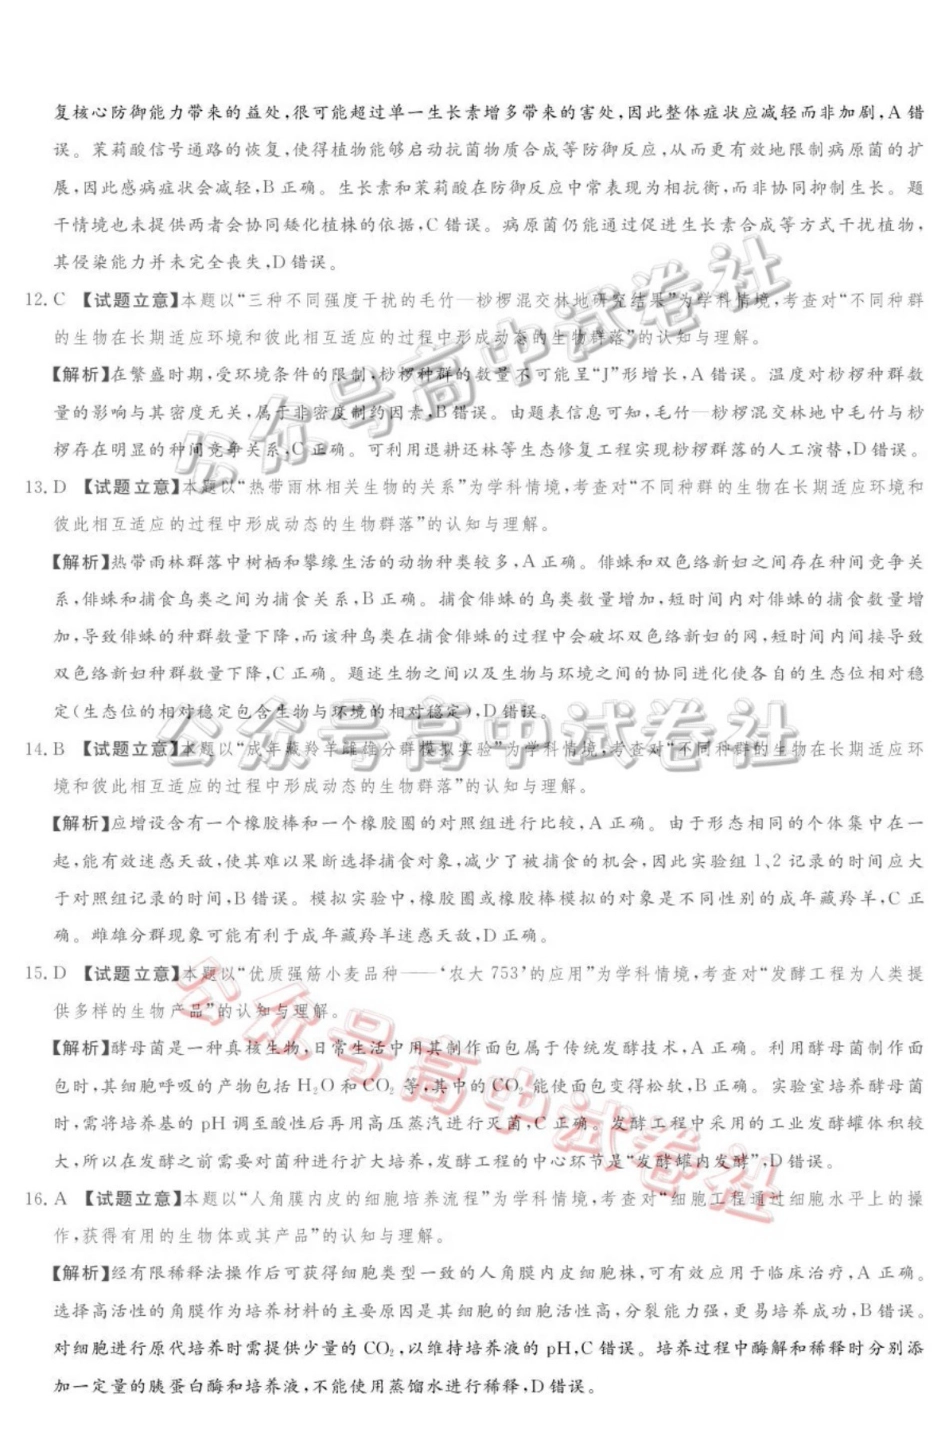 复核心防御能力带来的益处,很可能超过单一生长素增多带来的害处,因此整体症状应减轻而非加剧,A 错
误。茉莉酸信号通路的恢复,使得植物能够启动抗菌物质合成等防御反应,从而更有效地限制病原菌的扩
展,因此感病症状会减轻,B 正确。生长素和茉莉酸在防御反应中常表现为相抗衡,而非协同抑制生长。题
干情境也未提供两者会协同矮化植株的依据,C 错误。病原菌仍能通过促进生长素合成等方式干扰植物,
其侵染能力并未完全丧失,D 错误。
12. C 【试题立意】本题以“三种不同强度干扰的毛竹—桫椤混交林地研究结果”为学科情境,考查对“不同种群
的生物在长期适应环境和彼此相互适应的过程中形成动态的生物群落”的认知与理解。
【解析】在繁盛时期,受环境条件的限制,桫椤种群的数量不可能呈“J”形增长,A 错误。温度对桫椤种群数
量的影响与其密度无关,属于非密度制约因素,B 错误。由题表信息可知,毛竹—桫椤混交林地中毛竹与桫
椤存在明显的种间竞争关系,C 正确。可利用退耕还林等生态修复工程实现桫椤群落的人工演替,D 错误。
13. D 【试题立意】本题以“热带雨林相关生物的关系”为学科情境,考查对“不同种群的生物在长期适应环境和
彼此相互适应的过程中形成动态的生物群落”的认知与理解。
【解析】热带雨林群落中树栖和攀缘生活的动物种类较多,A 正确。俳蛛和双色络新妇之间存在种间竞争关
系,俳蛛和捕食鸟类之间为捕食关系,B 正确。捕食俳蛛的鸟类数量增加,短时间内对俳蛛的捕食数量增
加,导致俳蛛的种群数量下降,而该种鸟类在捕食俳蛛的过程中会破坏双色络新妇的网,短时间内间接导致
双色络新妇种群数量下降,C 正确。题述生物之间以及生物与环境之间的协同进化使各自的生态位相对稳
定(生态位的相对稳定包含生物与环境的相对稳定),D 错误。
14. B 【试题立意】本题以“成年藏羚羊雌雄分群模拟实验”为学科情境,考查对“不同种群的生物在长期适应环
境和彼此相互适应的过程中形成动态的生物群落”的认知与理解。
【解析】应增设含有一个橡胶棒和一个橡胶圈的对照组进行比较,A 正确。由于形态相同的个体集中在一
起,能有效迷惑天敌,使其难以果断选择捕食对象,减少了被捕食的机会,因此实验组 1、2 记录的时间应大
于对照组记录的时间,B 错误。模拟实验中,橡胶圈或橡胶棒模拟的对象是不同性别的成年藏羚羊,C 正
确。雌雄分群现象可能有利于成年藏羚羊迷惑天敌,D 正确。
15. D 【试题立意】本题以“优质强筋小麦品种——‘农大 753’的应用”为学科情境,考查对“发酵工程为人类提
供多样的生物产品”的认知与理解。
【解析】酵母菌是一种真核生物,日常生活中用其制作面包属于传统发酵技术,A 正确。利用酵母菌制作面
包时,其细胞呼吸的产物包括 H₂O 和 CO₂ 等,其中的 CO₂ 能使面包变得松软,B 正确。实验室培养酵母菌
时,需将培养基的 pH 调至酸性后再用高压蒸汽进行灭菌,C 正确。发酵工程中采用的工业发酵罐体积较
大,所以在发酵之前需要对菌种进行扩大培养,发酵工程的中心环节是“发酵罐内发酵”,D 错误。
16. A 【试题立意】本题以“人角膜内皮的细胞培养流程”为学科情境,考查对“细胞工程通过细胞水平上的操
作,获得有用的生物体或其产品”的认知与理解。
【解析】经有限稀释法操作后可获得细胞类型一致的人角膜内皮细胞株,可有效应用于临床治疗,A 正确。
选择高活性的角膜作为培养材料的主要原因是其细胞的细胞活性高,分裂能力强,更易培养成功,B 错误。
对细胞进行原代培养时需提供少量的 CO₂,以维持培养液的 pH,C 错误。培养过程中酶解和稀释时分别添
加一定量的胰蛋白酶和培养液,不能使用蒸馏水进行稀释,D 错误。
公众号高中试卷社
公众号高中试卷社
公众号高中试卷社